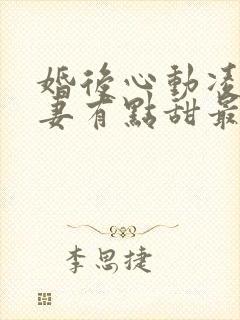 婚後心動凌
妻有點甜最
李思捷